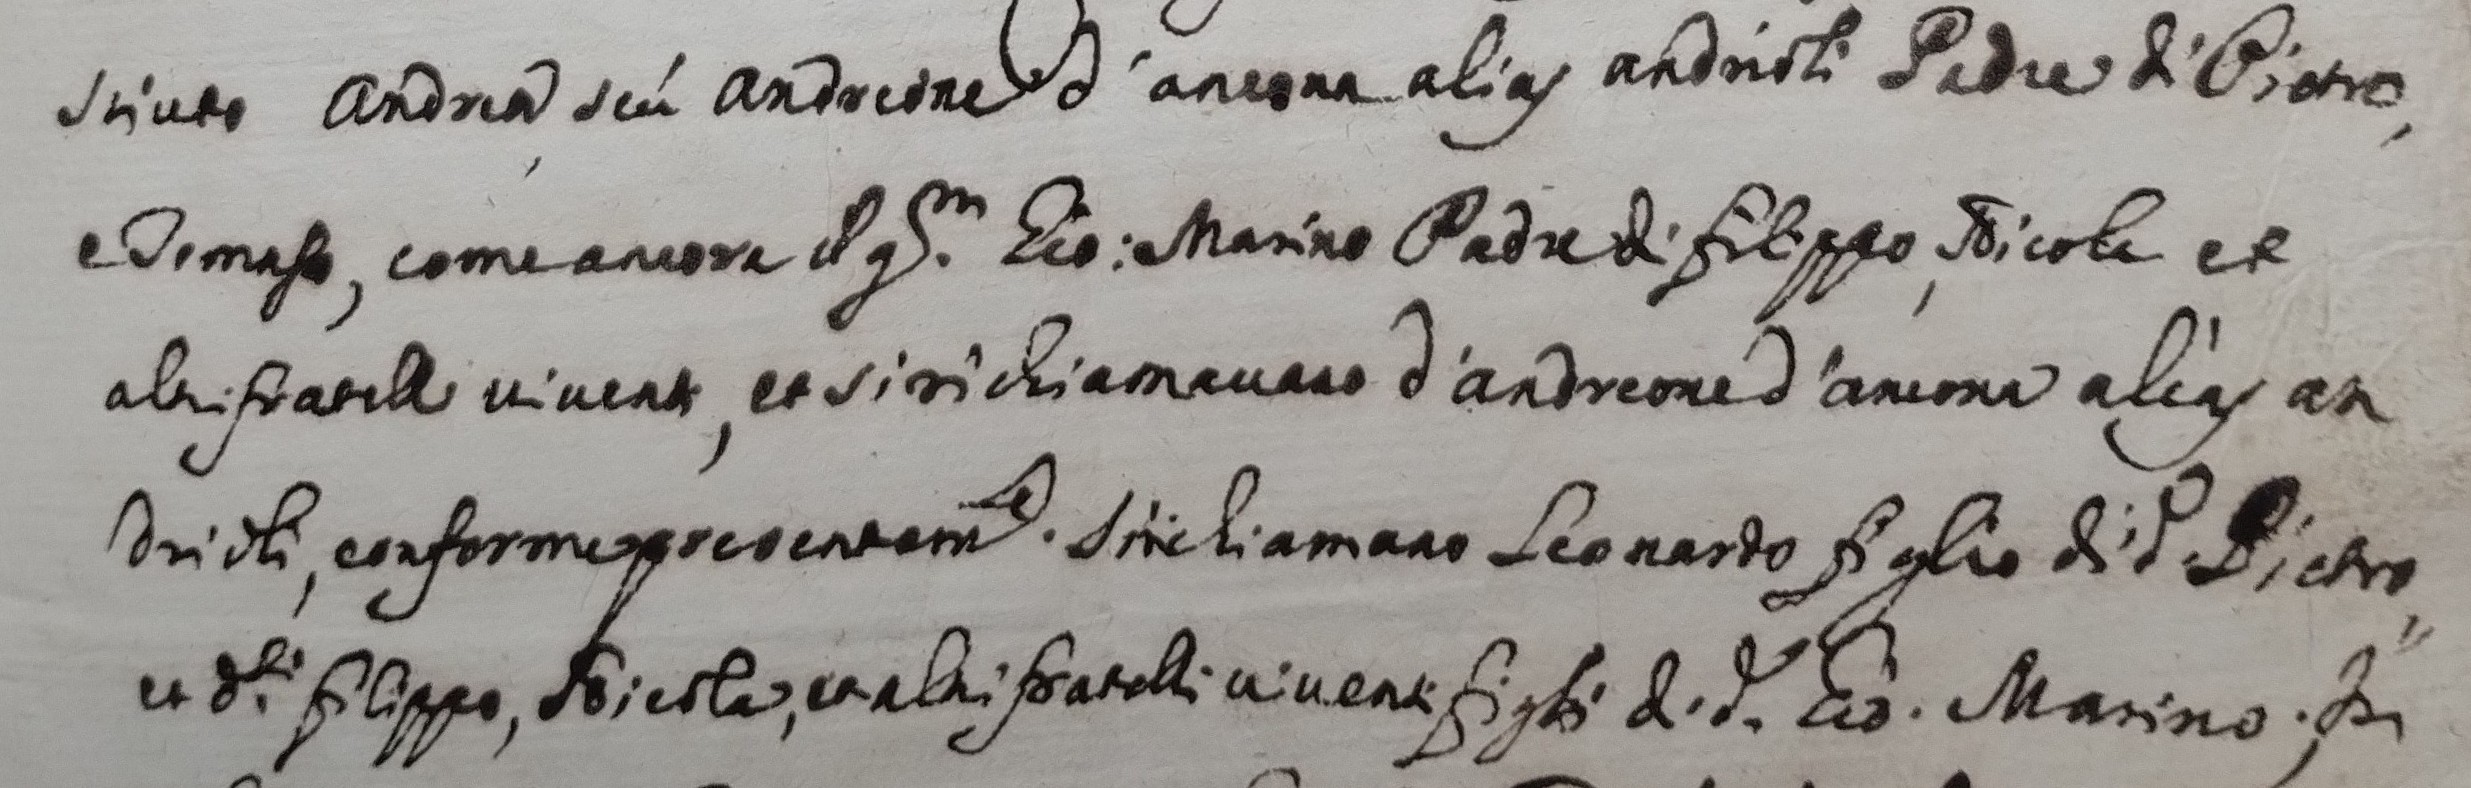 sciuto Andrea seù Andreone d'ancona alias andrioli Padre di Pietro,
e Tomaso, come ancora il qm. Gio: Marino Padre di filippo, Nicola et
altri fratelli viventi, et si richiamavano d'andreone d'ancona alias an
drioli, conforme presentem.e si richiamano Leonardo figlio di d. Pietro
et d.ti filippo, Nicola, et altri fratelli viventi figli di d.o Gio. Marino. In